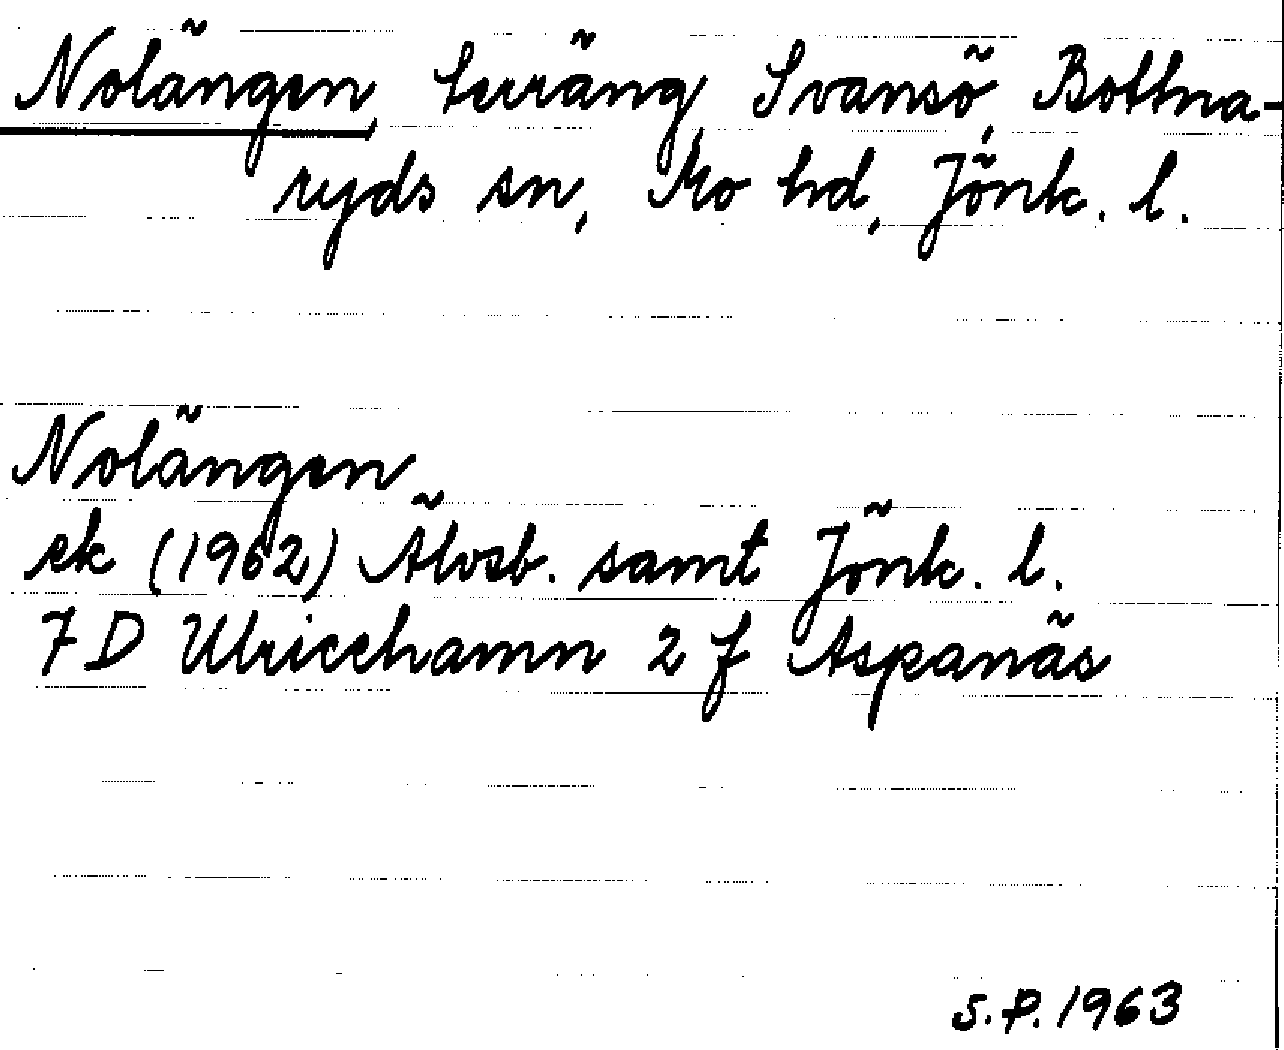 Nolängen, terräng, Svansö, Bottna-
ryds sn, Mo hd, Jönk. l.
Nolängen
ek (1962) Älvsb. samt Jönk. l.
7 D Ulricehamn 2 f Aspanäs
S.P. 1963